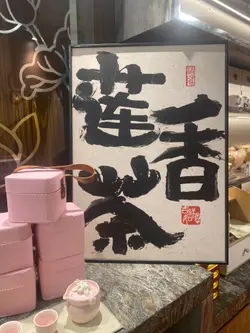 莲香
茶